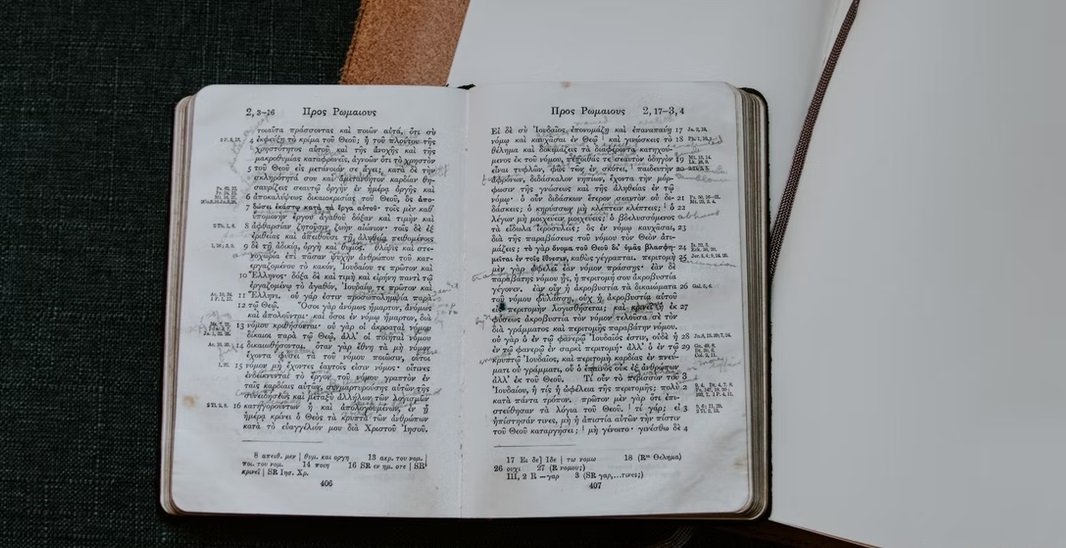 2, 3–16 Προς Ρωμαιους
τοιαῦτα πράσσοντας καὶ ποιῶν αὐτά, ὅτι σὺ
4 ἐκφεύξῃ τὸ κρίμα τοῦ Θεοῦ; ἢ τοῦ πλούτου τῆς
χρηστότητος αὐτοῦ καὶ τῆς ἀνοχῆς καὶ τῆς
μακροθυμίας καταφρονεῖς, ἀγνοῶν ὅτι τὸ χρηστὸν
5 τοῦ Θεοῦ εἰς μετάνοιάν σε ἄγει; κατὰ δὲ τὴν
σκληρότητά σου καὶ ἀμετανόητον καρδίαν θη-
σαυρίζεις σεαυτῷ ὀργὴν ἐν ἡμέρᾳ ὀργῆς καὶ
6 ἀποκαλύψεως δικαιοκρισίας τοῦ Θεοῦ, ὃς ἀπο-
7 δώσει ἑκάστῳ κατὰ τὰ ἔργα αὐτοῦ· τοῖς μὲν καθ’
ὑπομονὴν ἔργου ἀγαθοῦ δόξαν καὶ τιμὴν καὶ
8 ἀφθαρσίαν ζητοῦσιν ζωὴν αἰώνιον· τοῖς δὲ ἐξ
ἐριθείας καὶ ἀπειθοῦσι τῇ ἀληθείᾳ πειθομένοις
9 δὲ τῇ ἀδικίᾳ, ὀργὴ καὶ θυμός. θλῖψις καὶ στε-
νοχωρία ἐπὶ πᾶσαν ψυχὴν ἀνθρώπου τοῦ κατ-
εργαζομένου τὸ κακόν, Ἰουδαίου τε πρῶτον καὶ
10 Ἕλληνος· δόξα δὲ καὶ τιμὴ καὶ εἰρήνη παντὶ τῷ
ἐργαζομένῳ τὸ ἀγαθόν, Ἰουδαίῳ τε πρῶτον καὶ
11 Ἕλληνι. οὐ γάρ ἐστιν προσωπολημψία παρὰ
12 τῷ Θεῷ. Ὅσοι γὰρ ἀνόμως ἥμαρτον, ἀνόμως
καὶ ἀπολοῦνται· καὶ ὅσοι ἐν νόμῳ ἥμαρτον, διὰ
13 νόμου κριθήσονται· οὐ γὰρ οἱ ἀκροαταὶ νόμου
δίκαιοι παρὰ τῷ Θεῷ, ἀλλ’ οἱ ποιηταὶ νόμου
14 δικαιωθήσονται. ὅταν γὰρ ἔθνη τὰ μὴ νόμον
ἔχοντα φύσει τὰ τοῦ νόμου ποιῶσιν, οὗτοι
15 νόμον μὴ ἔχοντες ἑαυτοῖς εἰσιν νόμος· οἵτινες
ἐνδείκνυνται τὸ ἔργον τοῦ νόμου γραπτὸν ἐν
ταῖς καρδίαις αὐτῶν, συμμαρτυρούσης αὐτῶν τῆς
συνειδήσεως καὶ μεταξὺ ἀλλήλων τῶν λογισμῶν
16 κατηγορούντων ἢ καὶ ἀπολογουμένων, ἐν ᾗ
ἡμέρᾳ κρίνει ὁ Θεὸς τὰ κρυπτὰ τῶν ἀνθρώπων
κατὰ τὸ εὐαγγέλιόν μου διὰ Χριστοῦ Ἰησοῦ.
8 απειθ. μεν | θυμ. και οργη 13 ακρ. του νομ. |
ποι. του νομ. 14 ποιη 16 SR εν ημ. οτε | SR
κρινεῖ | SR Ιησ. Χρ.
406
Προς Ρωμαιους 2, 17–3, 4
Εἰ δὲ σὺ Ἰουδαῖος ἐπονομάζῃ καὶ ἐπαναπαύῃ 17
νόμῳ καὶ καυχᾶσαι ἐν Θεῷ καὶ γινώσκεις τὸ 18
θέλημα καὶ δοκιμάζεις τὰ διαφέροντα κατηχού-
μενος ἐκ τοῦ νόμου, πέποιθάς τε σεαυτὸν ὁδηγὸν 19
εἶναι τυφλῶν, φῶς τῶν ἐν σκότει, παιδευτὴν 20
ἀφρόνων, διδάσκαλον νηπίων, ἔχοντα τὴν μόρ-
φωσιν τῆς γνώσεως καὶ τῆς ἀληθείας ἐν τῷ
νόμῳ· ὁ οὖν διδάσκων ἕτερον σεαυτὸν οὐ δι- 21
δάσκεις; ὁ κηρύσσων μὴ κλέπτειν κλέπτεις; ὁ 22
λέγων μὴ μοιχεύειν μοιχεύεις; ὁ βδελυσσόμενος
τὰ εἴδωλα ἱεροσυλεῖς; ὃς ἐν νόμῳ καυχᾶσαι, 23
διὰ τῆς παραβάσεως τοῦ νόμου τὸν Θεὸν ἀτι-
μάζεις; τὸ γὰρ ὄνομα τοῦ Θεοῦ δι’ ὑμᾶς βλασφη- 24
μεῖται ἐν τοῖς ἔθνεσιν, καθὼς γέγραπται. περιτομὴ 25
μὲν γὰρ ὠφελεῖ ἐὰν νόμον πράσσῃς· ἐὰν δὲ
παραβάτης νόμου ᾖς, ἡ περιτομή σου ἀκροβυστία
γέγονεν. ἐὰν οὖν ἡ ἀκροβυστία τὰ δικαιώματα 26
τοῦ νόμου φυλάσσῃ, οὐχ ἡ ἀκροβυστία αὐτοῦ
εἰς περιτομὴν λογισθήσεται; καὶ κρινεῖ ἡ ἐκ 27
φύσεως ἀκροβυστία τὸν νόμον τελοῦσα σὲ τὸν
διὰ γράμματος καὶ περιτομῆς παραβάτην νόμου.
οὐ γὰρ ὁ ἐν τῷ φανερῷ Ἰουδαῖός ἐστιν, οὐδὲ ἡ 28
ἐν τῷ φανερῷ ἐν σαρκὶ περιτομή· ἀλλ’ ὁ ἐν τῷ 29
κρυπτῷ Ἰουδαῖος, καὶ περιτομὴ καρδίας ἐν πνεύ-
ματι οὐ γράμματι, οὗ ὁ ἔπαινος οὐκ ἐξ ἀνθρώπων
ἀλλ’ ἐκ τοῦ Θεοῦ. Τί οὖν τὸ περισσὸν τοῦ 3
Ἰουδαίου, ἢ τίς ἡ ὠφέλεια τῆς περιτομῆς; πολὺ 2
κατὰ πάντα τρόπον. πρῶτον μὲν γὰρ ὅτι ἐπι-
στεύθησαν τὰ λόγια τοῦ Θεοῦ. τί γάρ; εἰ 3
ἠπίστησάν τινες, μὴ ἡ ἀπιστία αὐτῶν τὴν πίστιν
τοῦ Θεοῦ καταργήσει; μὴ γένοιτο· γινέσθω δὲ 4
17 Ει δε] Ιδε | τω νομω 18 (Rᵐ Θέλημα)
26 ουχι 27 (R νομου;)
III, 2 R –γαρ 3 (SR γαρ,...τινες;)
407